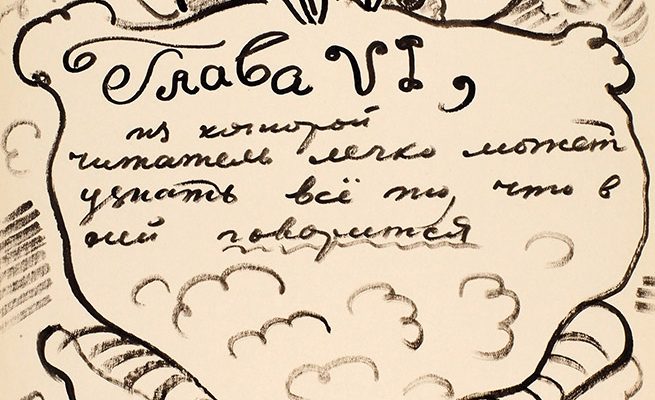 Глава VI,
из которой
читатель легко может
узнать всё то, что в
ней говорится